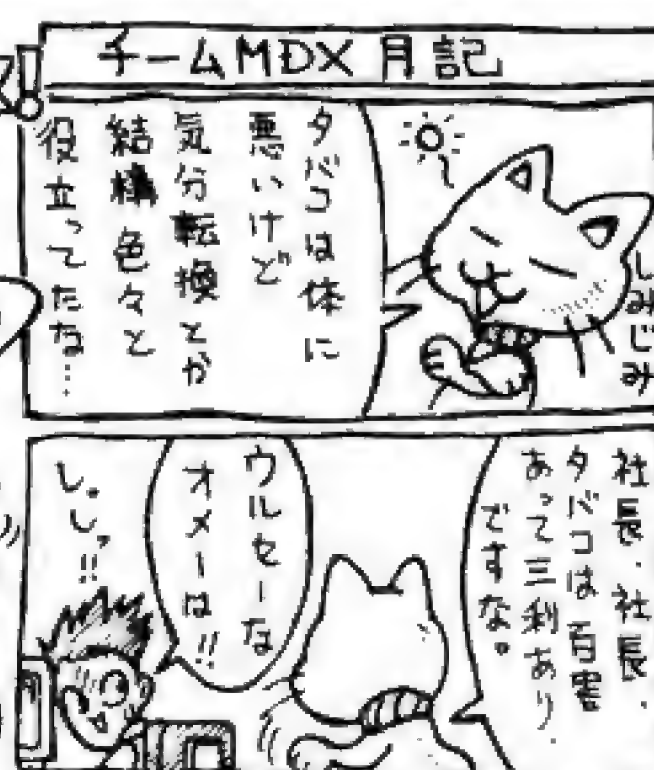 チームMDX 月記
タバコは体に
悪いけど
気分転換とか
結構色々と
役立ってたな…
しみじみ
社長、社長、
タバコは百害
あって三利あり、
ですな。
ウルセーな
オメーは!!
しっしっ!!